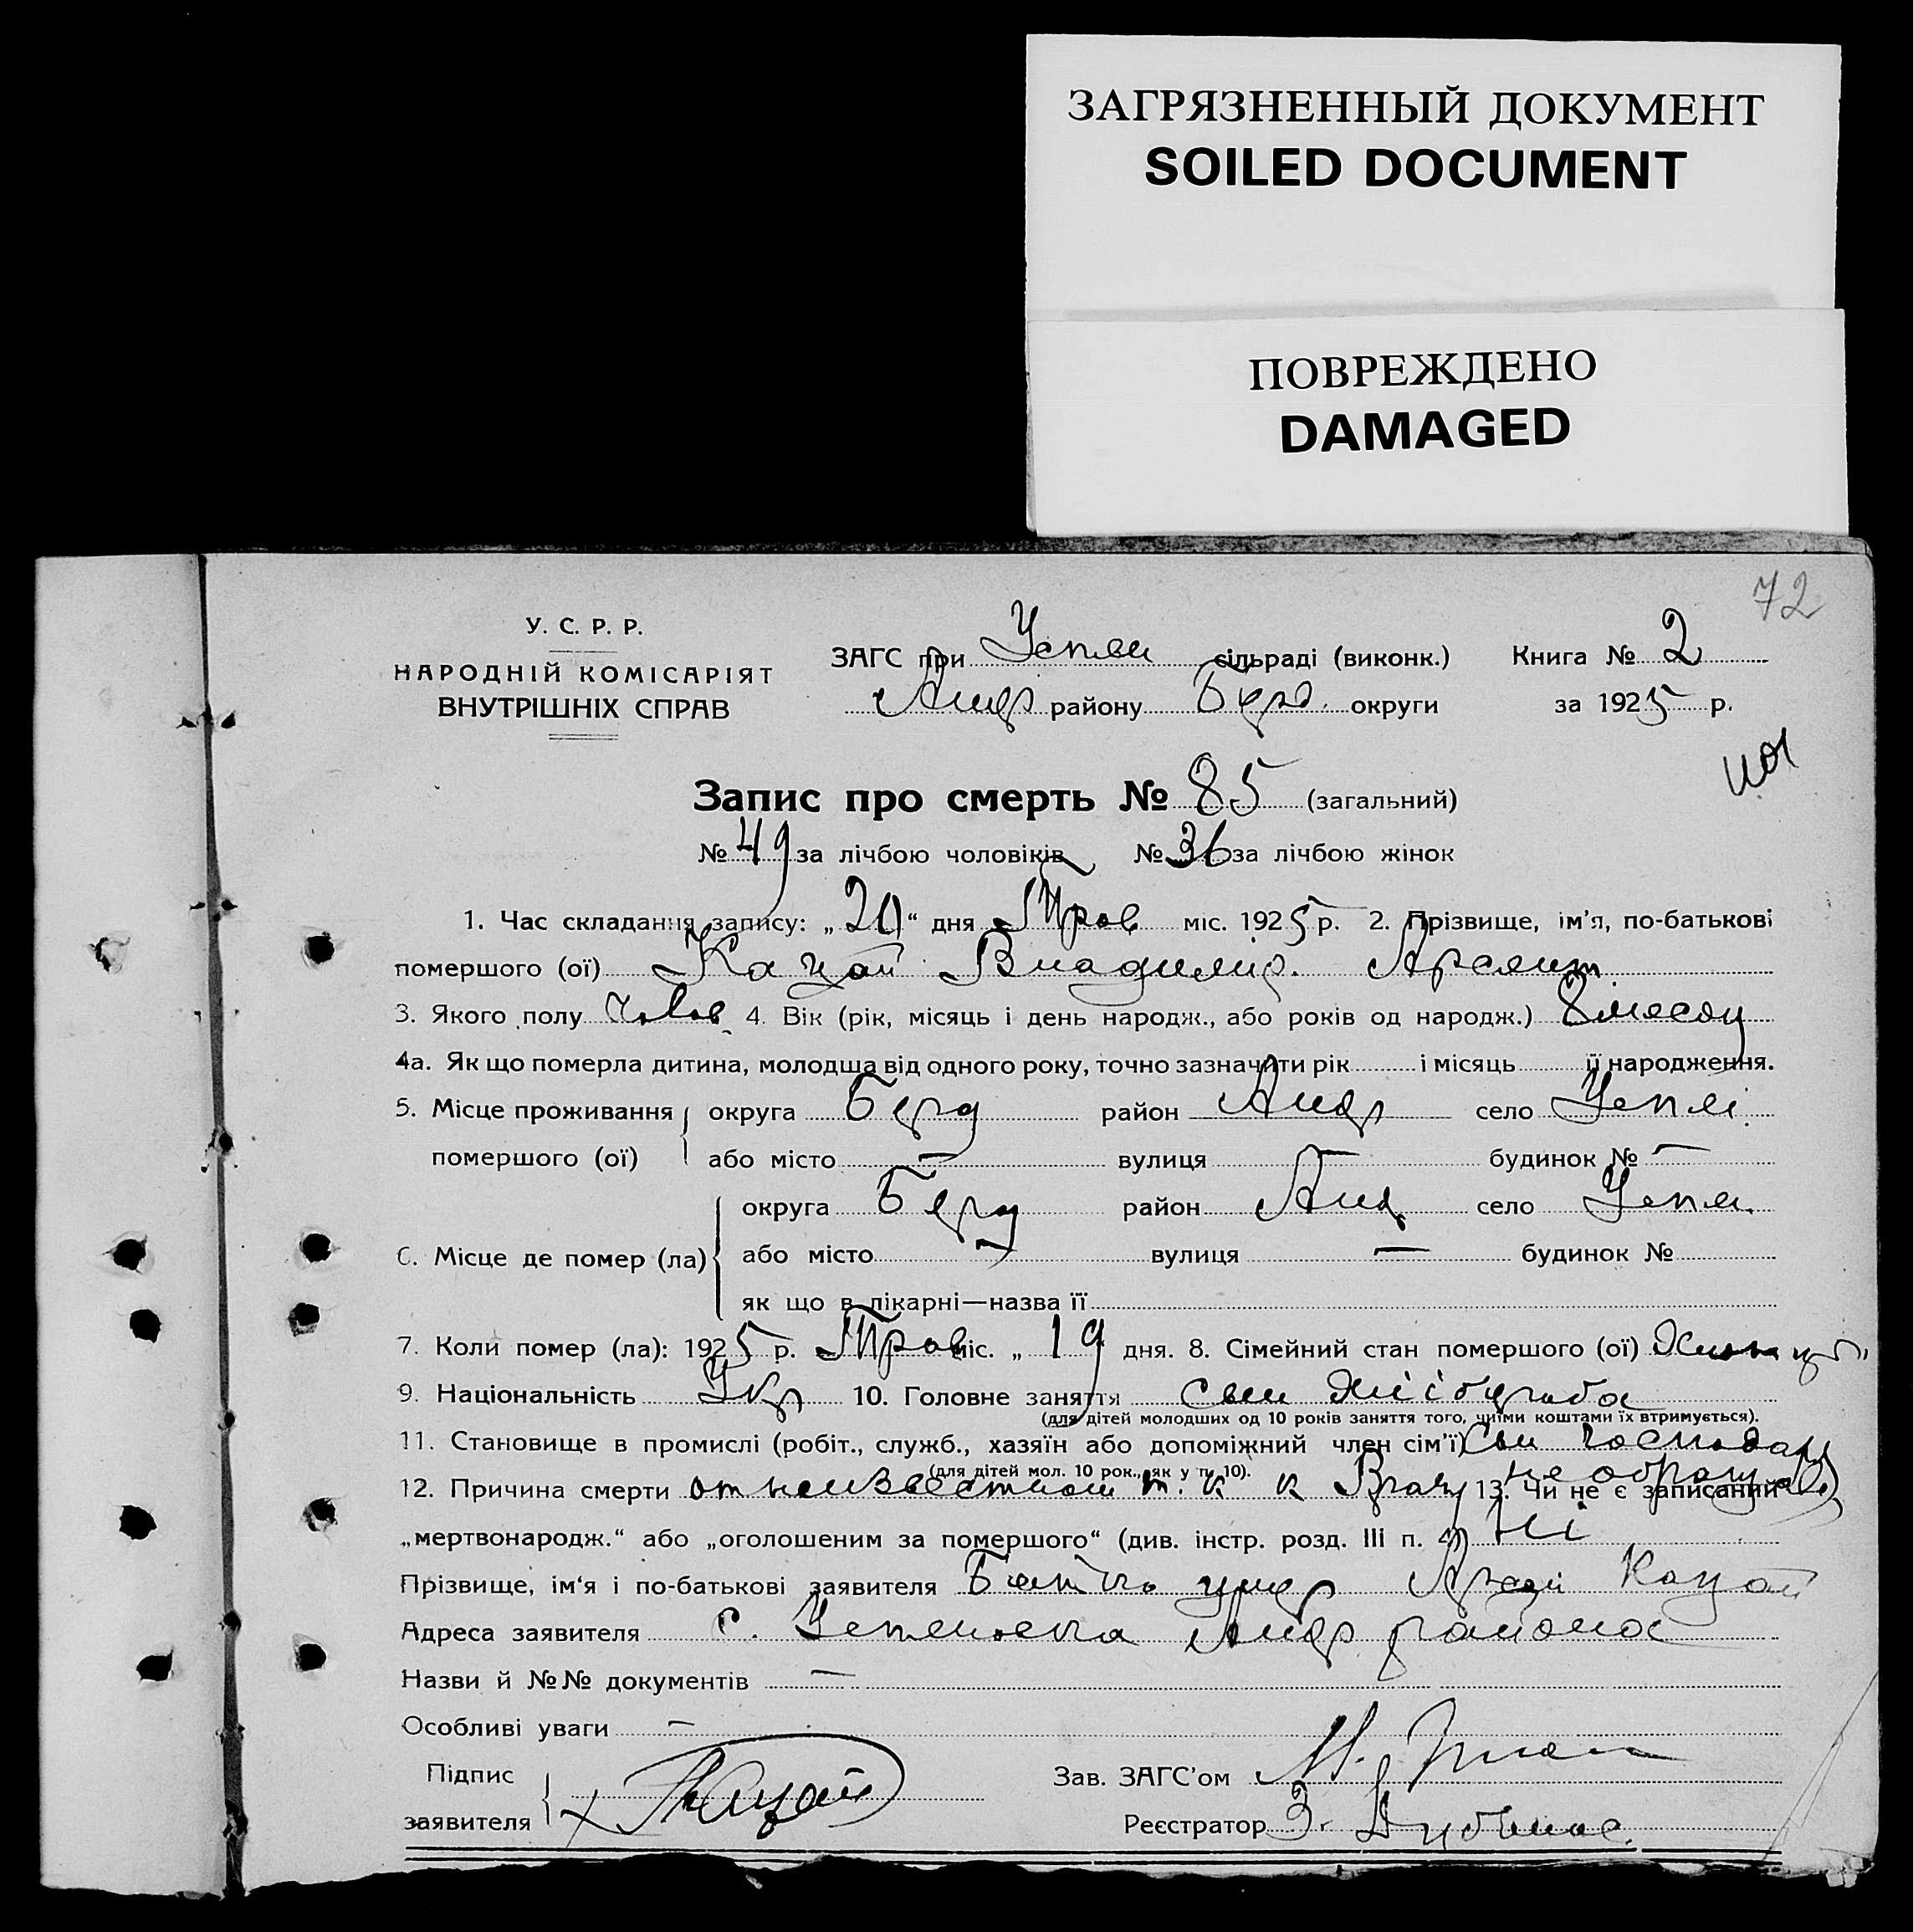 ЗАГРЯЗНЕННЫЙ ДОКУМЕНТ
SOILED DOCUMENT
ПОВРЕЖДЕНО
DAMAGED
72
У. С. Р. Р.
НАРОДНІЙ КОМІСАРІЯТ
ВНУТРІШНІХ СПРАВ
ЗАГС при Успен сільраді (виконк.) Книга № 2
Андр району Берд. округи за 1925 р.
Запис про смерть № 85 (загальний)
№ 49 за лічбою чоловіків № 36 за лічбою жінок
1. Час складання запису: „20“ дня Трав міс. 1925 р. 2. Прізвище, ім’я, по-батькові
помершого (ої) Кацай Владимир.
3. Якого полу Чолов 4. Вік (рік, місяць і день народж., або років од народж.) 8 месяц
4а. Як що померла дитина, молодша від одного року, точно зазначити рік і місяць її народження.
5. Місце проживання округа Берд район Андр село Успен
помершого (ої) або місто — вулиця — будинок № —
округа Берд район Анд село Успен.
6. Місце де помер (ла) або місто — вулиця — будинок №
як що в лікарні—назва її
7. Коли помер (ла): 1925 р. Трав міс. „19 дня. 8. Сімейний стан помершого (ої)
9. Національність Укр 10. Головне заняття Син Хлібороба
(для дітей молодших од 10 років заняття того, чиїми коштами їх втримується).
11. Становище в промислі (робіт., служб., хазяїн або допоміжний член сім’ї) Син господар
(для дітей мол. 10 рок., як у п. 10).
12. Причина смерти от неизвестной т. к к Врачу не обращ 13. Чи не є записаний
„мертвонародж.“ або „оголошеним за помершого“ (див. інстр. розд. III п. 4) Ні
Прізвище, ім‘я і по-батькові заявителя Батько Кацай
Адреса заявителя с. Успеновка Андр района
Назви й №№ документів —
Особливі уваги —
Підпис
заявителя Кацай
Зав. ЗАГС’ом
Реєстратор З.